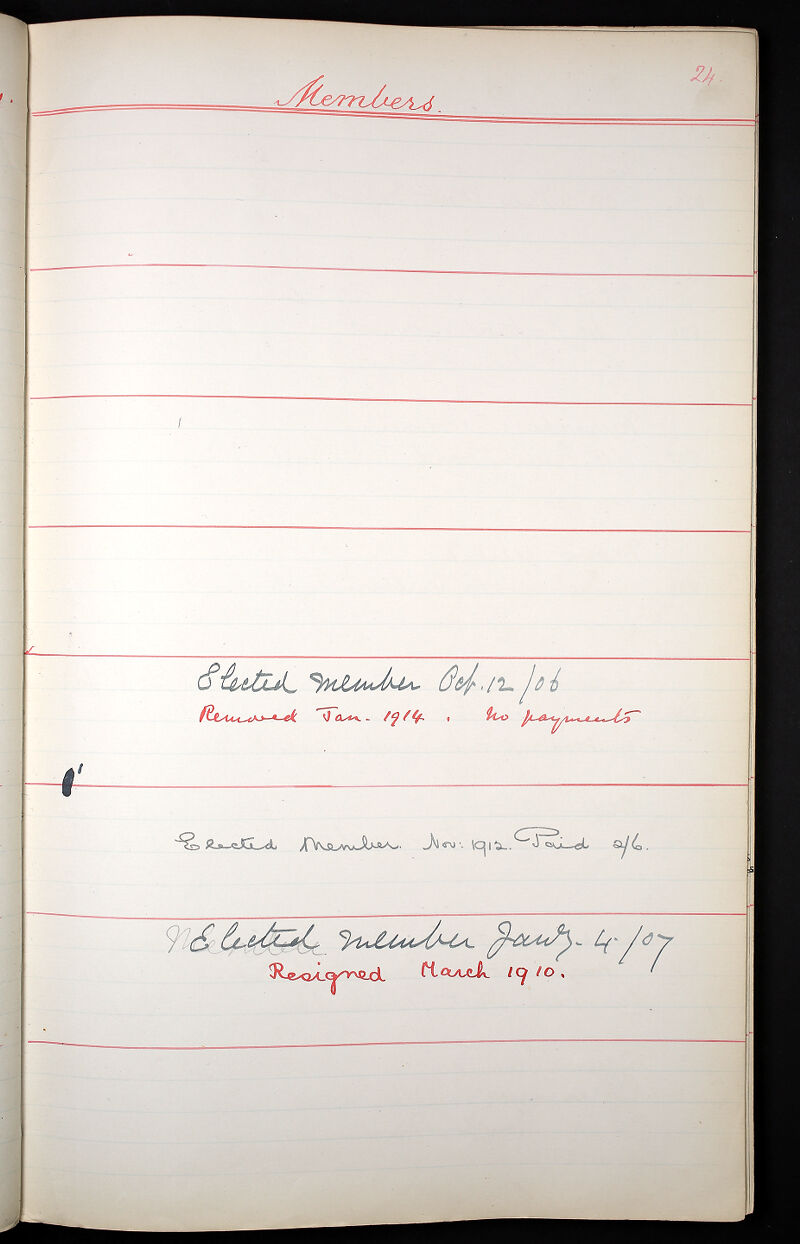 24.
Members.
Elected member Oct. 12/06
Removed Jan. 1914. No payments
Elected Member. Nov: 1912. Paid 2/6.
Elected member Jany. 4/07
Resigned March 1910.